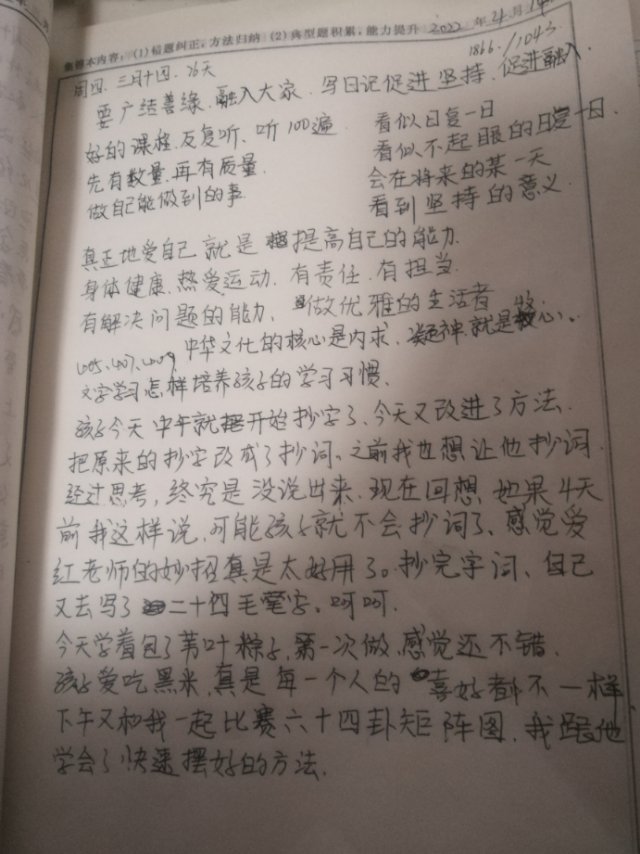 集错本内容：(1) 错题纠正，方法归纳 (2) 典型题积累，能力提升 2022年4月14
1866./1043.
周四、三月十四、76天
要广结善缘、融入大家、写日记促进坚持、促进融入.
好的课程，反复听、听100遍
先有数量，再有质量.
做自己能做到的事
看似日复一日
看似不起眼的日复一日.
会在将来的某一天
看到坚持的意义.
真正地爱自己就是提高自己的能力.
身体健康、热爱运动、有责任、有担当.
有解决问题的能力、做优雅的生活者
中华文化的核心是内求、凝神就是
文字学习怎样培养孩子的学习习惯.
孩子今天中午就开始抄字了、今天又改进了方法.
把原来的抄字改成了抄词、之前我也想让他抄词.
经过思考，终究是没说出来、现在回想，如果4天
前我这样说，可能孩子就不会抄词了、感觉爱
红老师的妙招真是太好用了。抄完字词、自己
又去写了二十四毛笔字。呵呵.
今天学着包了苇叶粽子，第一次做，感觉还不错.
孩子爱吃黑米，真是每一个人的喜好都不一样
下午又和我一起比赛六十四卦矩阵图、我跟他
学会了快速摆好的方法.